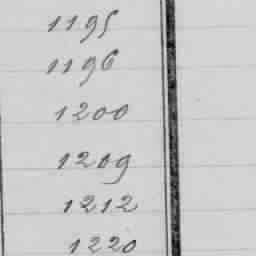 1195
1196
1200
1209
1212
1220